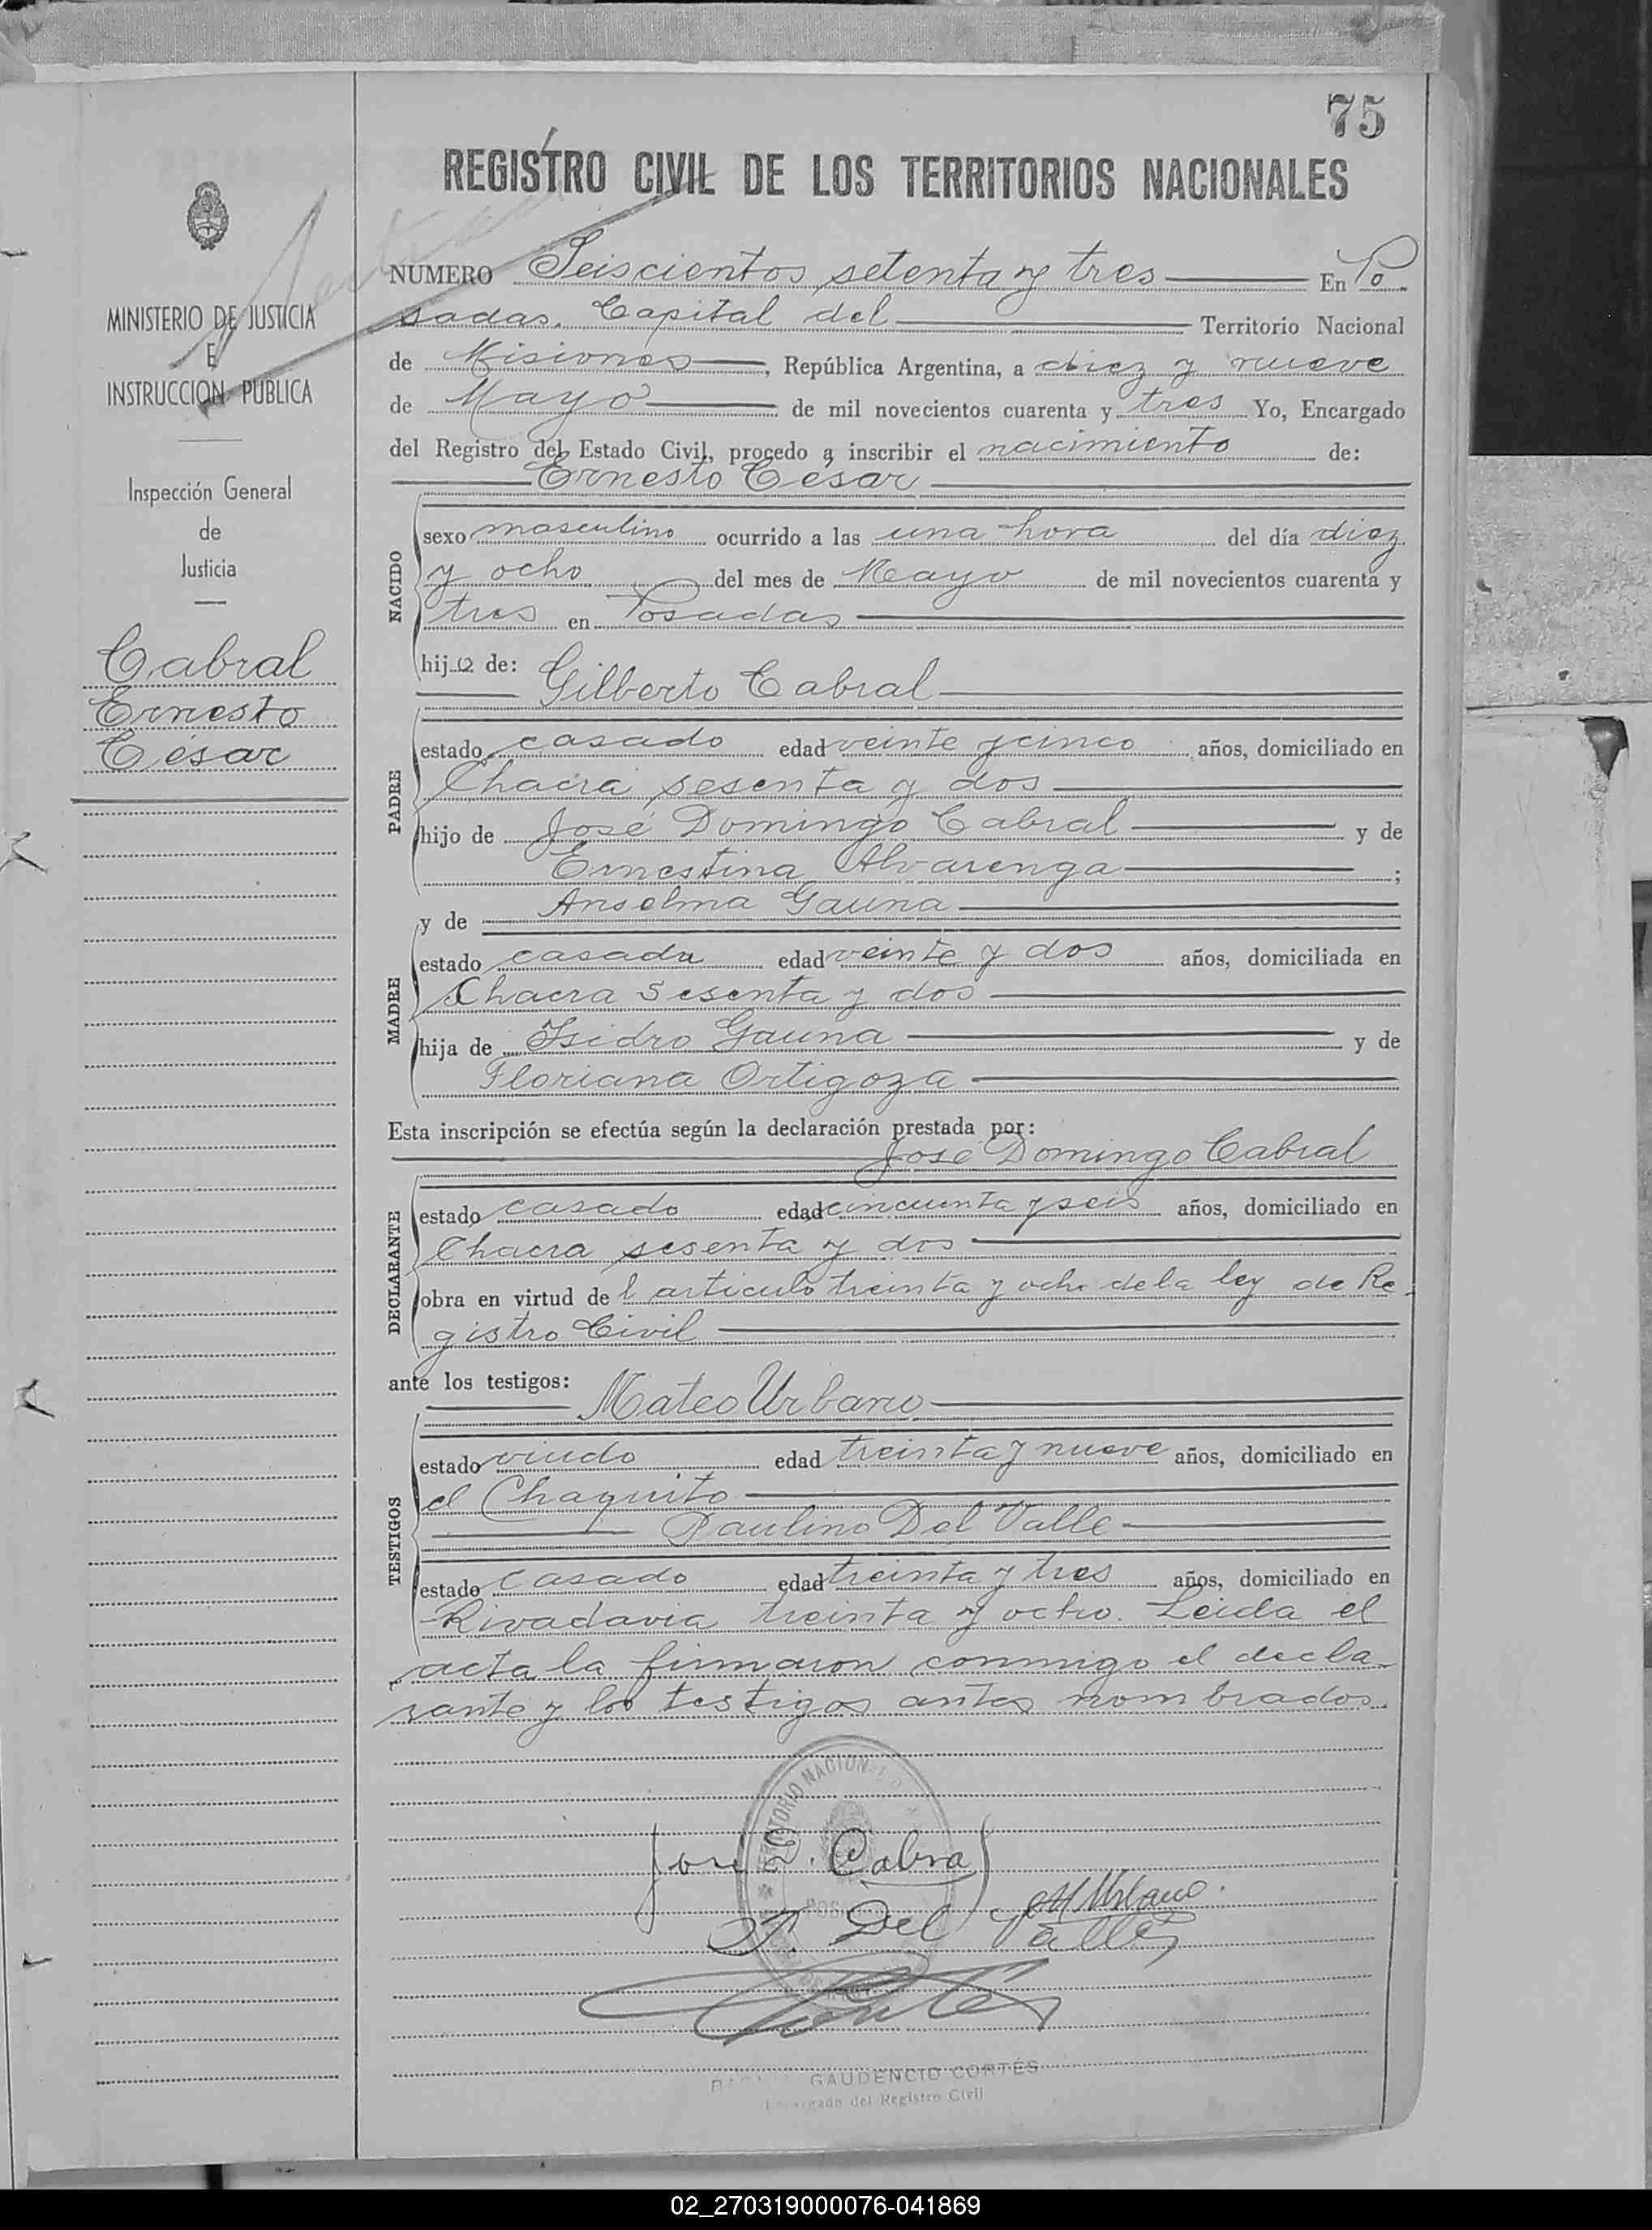 75
REGISTRO CIVIL DE LOS TERRITORIOS NACIONALES
MINISTERIO DE JUSTICIA
E
INSTRUCCION PUBLICA
Inspección General
de
Justicia
Cabral
Ernesto
César
NUMERO Seiscientos setenta y tres En Po
sadas, Capital del Territorio Nacional
de Misiones, República Argentina, a diez y nueve
de Mayo de mil novecientos cuarenta y tres Yo, Encargado
del Registro del Estado Civil, procedo a inscribir el nacimiento de:
Ernesto César
NACIDO
sexo masculino ocurrido a las una hora del día diez
y ocho del mes de Mayo de mil novecientos cuarenta y
tres en Posadas
hijo de: Gilberto Cabral
PADRE
estado casado edad veinte y cinco años, domiciliado en
Chacra sesenta y dos
hijo de José Domingo Cabral y de
Ernestina Alvarenga;
y de Anselma Gauna
MADRE
estado casada edad veinte y dos años, domiciliada en
Chacra sesenta y dos
hija de Isidro Gauna y de
Floriana Ortigoza
Esta inscripción se efectúa según la declaración prestada por:
José Domingo Cabral
DECLARANTE
estado casado edad cincuenta y seis años, domiciliado en
Chacra sesenta y dos
obra en virtud de l articulo treinta y ocho de la ley de Re-
gistro Civil
ante los testigos: Mateo Urbano
TESTIGOS
estado viudo edad treinta y nueve años, domiciliado en
el Chaquito
Paulino Del Valle
estado casado edad treinta y tres años, domiciliado en
Rivadavia treinta y ocho. Leida el
acta la firmaron conmigo el decla-
rante y los testigos antes nombrados.
José D. Cabral
M Urbano.
P. Del Valle
GAUDENCIO CORTÉS
Encargado del Registro Civil
02_270319000076-041869